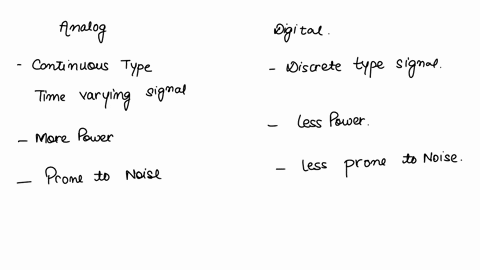 Analog
- Continuous Type
Time varying signal
- More Power
- Prone to Noise
Digital.
- Discrete type signal.
- less Power.
- less prone to Noise.